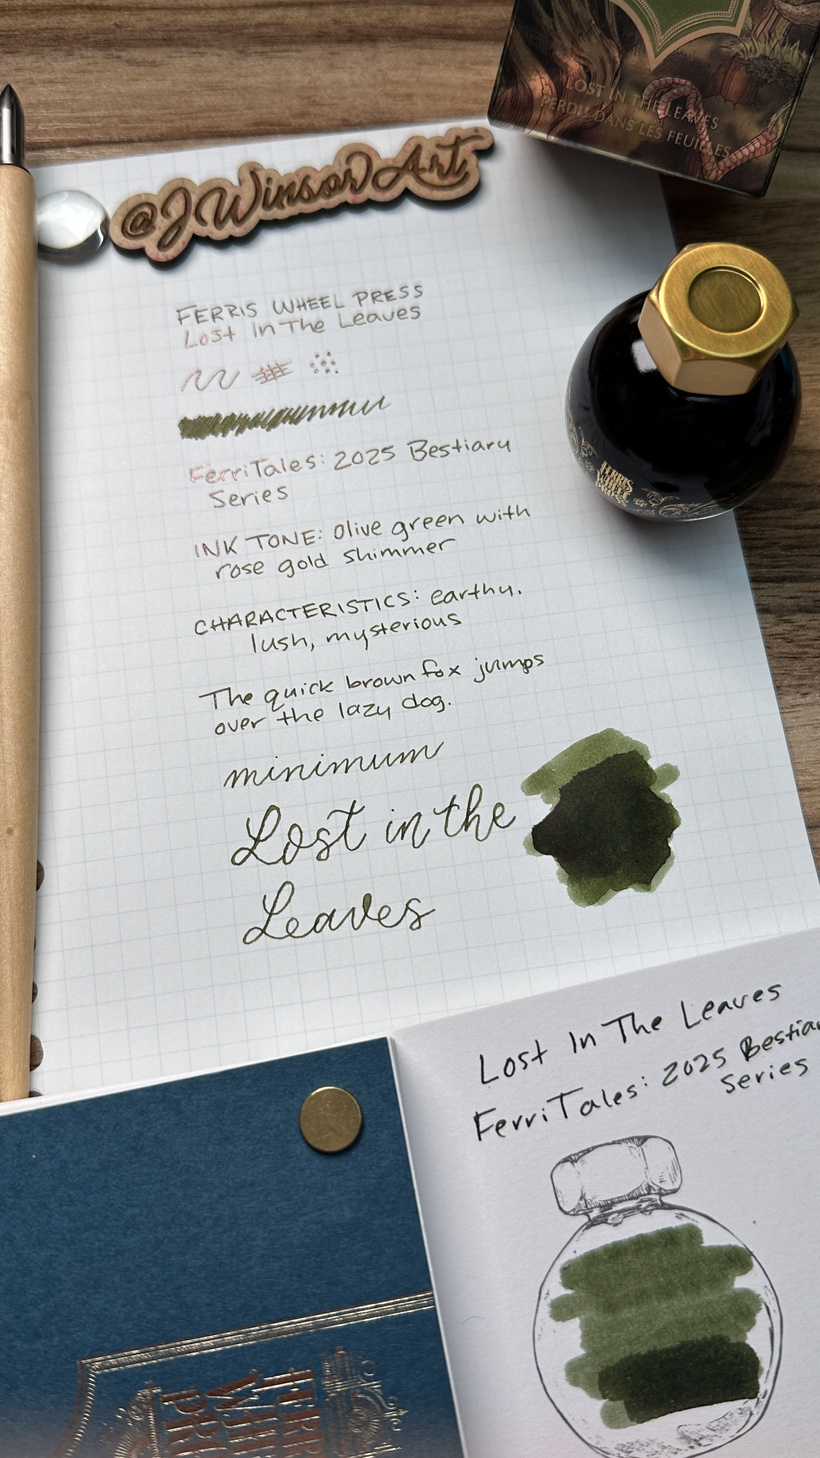 LOST IN THE LEAVES
PERDU DANS LES FEUILLES
@JWinsorArt
FERRIS WHEEL PRESS
Lost In The Leaves
FerriTales: 2025 Bestiary
Series
INK TONE: olive green with
rose gold shimmer
CHARACTERISTICS: earthy,
lush, mysterious
The quick brown fox jumps
over the lazy dog.
minimum
Lost in the
Leaves
FERRIS
WHEEL
PRESS
Lost In The Leaves
FerriTales: 2025 Bestia
Series
FERR
WH
PR